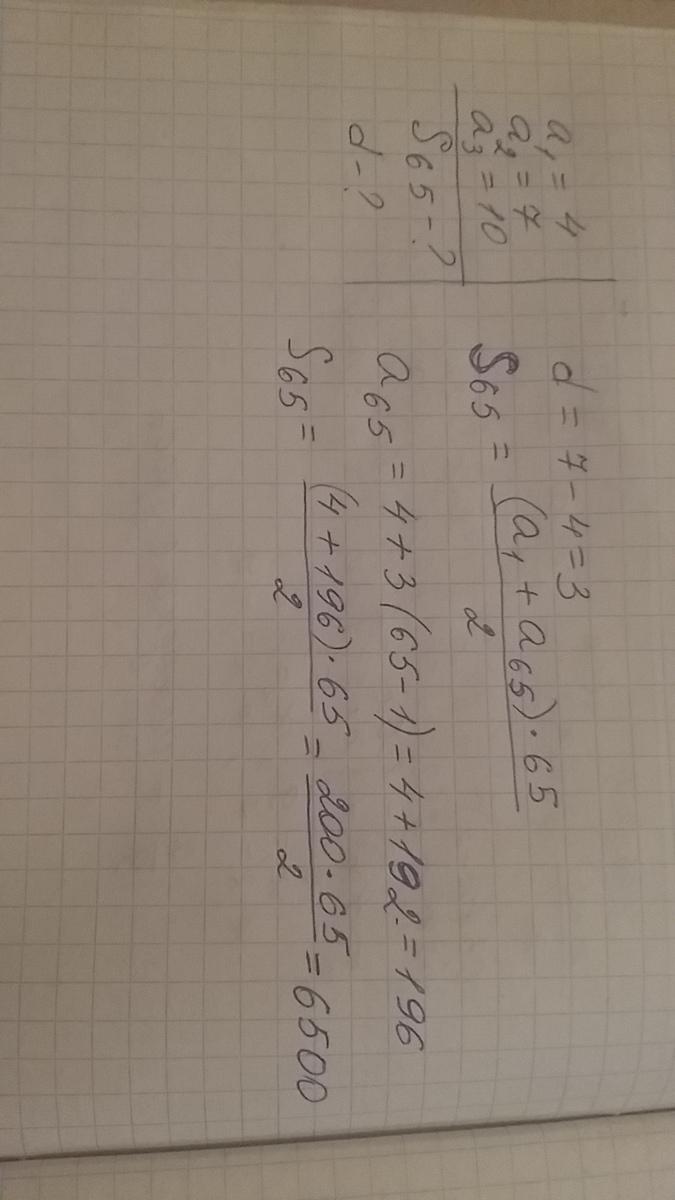 a₁ = 4
a₂ = 7
a₃ = 10
S₆₅ - ?
d - ?
d = 7 - 4 = 3
S₆₅ = (a₁ + a₆₅) · 65 / 2
a₆₅ = 4 + 3 (65 - 1) = 4 + 192 = 196
S₆₅ = (4 + 196) · 65 / 2 = 200 · 65 / 2 = 6500